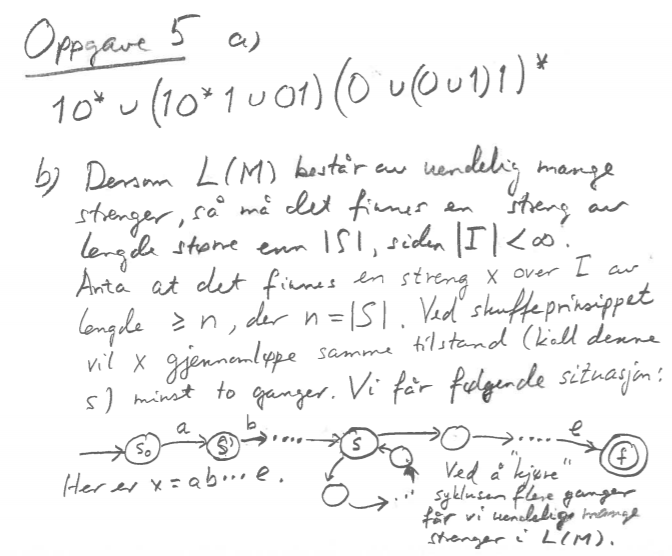 Oppgave 5 a)
10* ∪ (10*1 ∪ 01)(0 ∪ (0∪1)1)*
b) Dersom L(M) består av uendelig mange
strenger, så må det finnes en streng av
lengde større enn |S|, siden |I| < ∞.
Anta at det finnes en streng x over I av
lengde ≥ n, der n = |S|. Ved skuffeprinsippet
vil x gjennomløpe samme tilstand (kall denne
s) minst to ganger. Vi får følgende situasjon:
a b e
s₀ s' .... s ..... f
Her er x = ab...e.
Ved å "kjøre"
syklusen flere ganger
får vi uendelig mange
strenger i L(M).